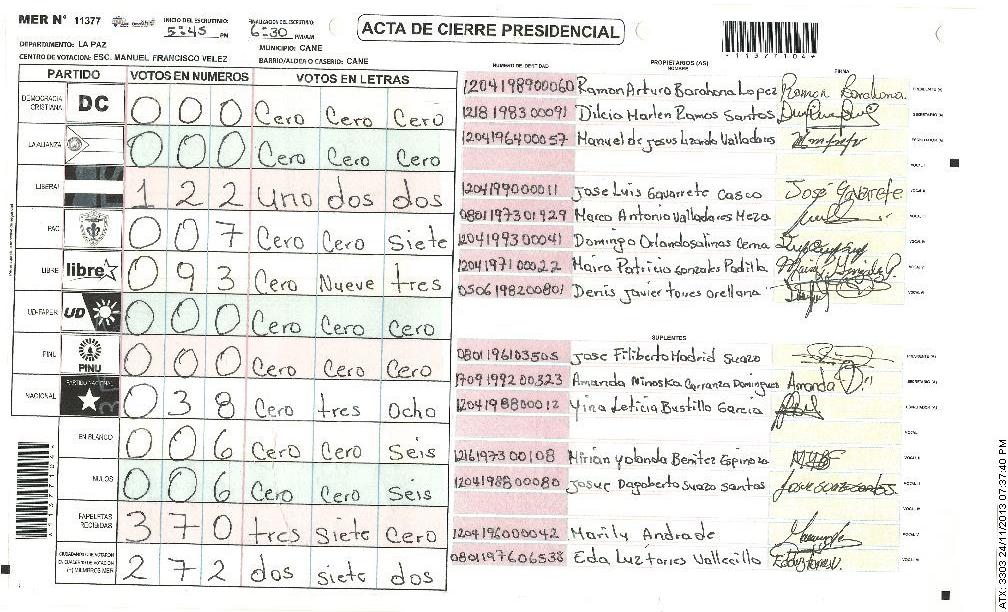 MER N° 11377
INICIO DEL ESCRUTINIO:
5:45 PM
FINALIZACION DEL ESCRUTINIO:
6:30 PM/AM
ACTA DE CIERRE PRESIDENCIAL
*11377104*
DEPARTAMENTO: LA PAZ
MUNICIPIO: CANE
CENTRO DE VOTACION: ESC. MANUEL FRANCISCO VELEZ
BARRIO/ALDEA O CASERIO: CANE
PARTIDO VOTOS EN NUMEROS VOTOS EN LETRAS
DEMOCRACIA CRISTIANA DC 0 0 0 Cero Cero Cero
LA ALIANZA 0 0 0 Cero Cero Cero
LIBERAL 1 2 2 uno dos dos
PAC 0 0 7 Cero Cero Siete
LIBRE libre 0 9 3 Cero Nueve tres
UD-FAPER UD 0 0 0 Cero Cero Cero
PINU PINU 0 0 0 Cero Cero Cero
NACIONAL PARTIDO NACIONAL 0 3 8 Cero tres Ocho
EN BLANCO 0 0 6 Cero Cero Seis
NULOS 0 0 6 Cero Cero Seis
PAPELETAS RECIBIDAS 3 7 0 tres Siete Cero
2 7 2 dos siete dos
NUMERO DE IDENTIDAD PROPIETARIOS (AS) NOMBRE FIRMA
1204198900060 Ramon Arturo Barahona Lopez Ramon Barahona
1218198300091 Dilcia Marlen Ramos Santos
1204196400057 Manuel de Jesus Lizardo Valladares
1204199000011 Jose Luis Gavarrete Casco José Gavarrete
0801197301929 Marco Antonio Valladares Meza
1204199300041 Domingo Orlando Salinas Cerna
1204197100022 Maira Patricia Gonzales Padilla
0506198200801 Denis Javier torres orellana
SUPLENTES
0801196103505 Jose Filiberto Madrid Suazo
1709199200323 Amanda Minoska Carranza Dominguez Amanda
1204198800012 Yina Leticia Bustillo Garcia
1216197300108 Mirian yolanda Benitez Espinoza
1204198800080 Josue Dagoberto Suazo Santos
1204196000042 Marily Andrade
0801197606538 Eda Luz torres Vallecillo
ATX: 3303 24/11/2013 07:37:40 PM